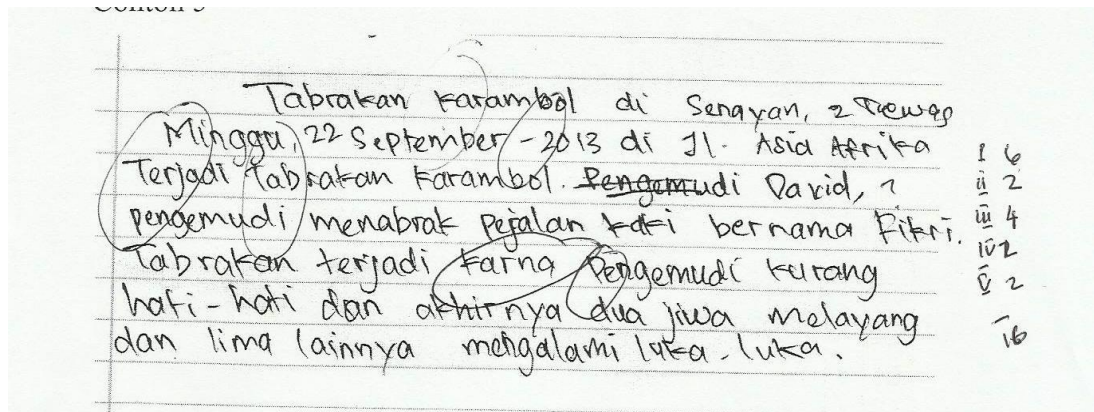 Contoh 3
Tabrakan Karambol di Senayan, 2 Tewas
Minggu, 22 September - 2013 di Jl. Asia Afrika
Terjadi Tabrakan Karambol. Pengemudi David, ?
pengemudi menabrak pejalan kaki bernama Fikri.
Tabrakan terjadi karna Pengemudi kurang
hati-hati dan akhirnya dua jiwa melayang
dan lima lainnya mengalami luka-luka.
I 6
II 2
III 4
IV 2
V 2
16